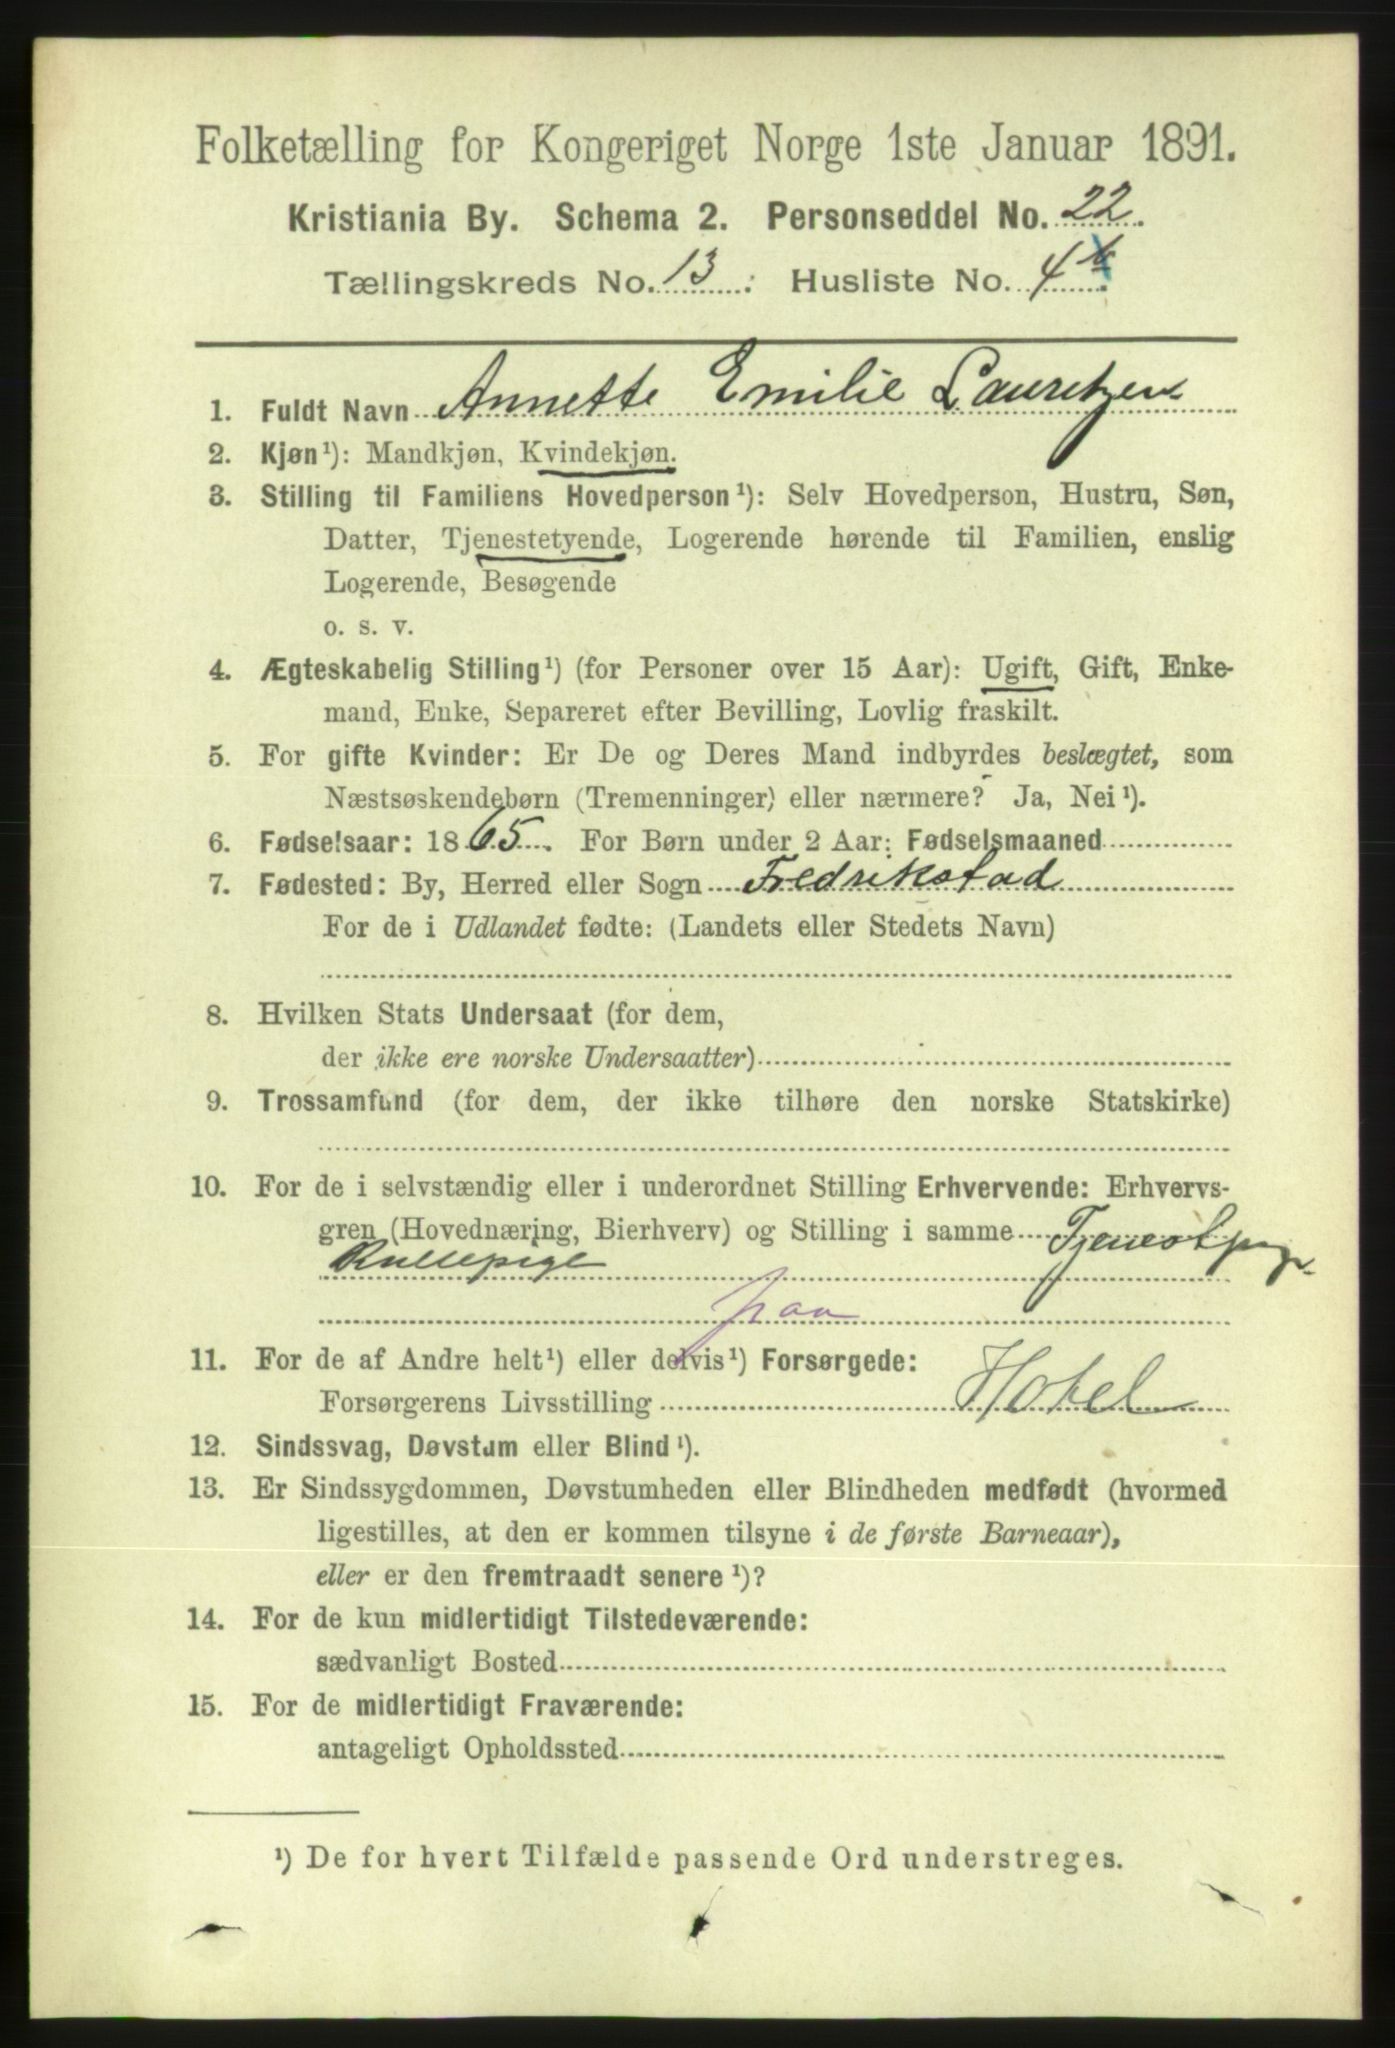 Folketælling for Kongeriget Norge 1ste Januar 1891.
Kristiania By. Schema 2. Personseddel No. 22.
Tællingskreds No. 13: Husliste No. 4
1. Fuldt Navn Annette Emilie Lauretzen
2. Kjøn¹): Mandkjøn, Kvindekjøn.
3. Stilling til Familiens Hovedperson¹): Selv Hovedperson, Hustru, Søn,
Datter, Tjenestetyende, Logerende hørende til Familien, enslig
Logerende, Besøgende
o. s. v.
4. Ægteskabelig Stilling¹) (for Personer over 15 Aar): Ugift, Gift, Enke-
mand, Enke, Separeret efter Bevilling, Lovlig fraskilt.
5. For gifte Kvinder: Er De og Deres Mand indbyrdes beslægtet, som
Næstsøskendebørn (Tremenninger) eller nærmere? Ja, Nei¹).
6. Fødselsaar: 1865. For Børn under 2 Aar: Fødselsmaaned
7. Fødested: By, Herred eller Sogn Fredrikstad
For de i Udlandet fødte: (Landets eller Stedets Navn)
8. Hvilken Stats Undersaat (for dem,
der ikke ere norske Undersaatter)
9. Trossamfund (for dem, der ikke tilhøre den norske Statskirke)
10. For de i selvstændig eller i underordnet Stilling Erhvervende: Erhvervs-
gren (Hovednæring, Bierhverv) og Stilling i samme Tjenestpige
Rullepige
paa
11. For de af Andre helt¹) eller delvis¹) Forsørgede:
Forsørgerens Livsstilling Hotel
12. Sindssvag, Døvstum eller Blind¹).
13. Er Sindssygdommen, Døvstumheden eller Blindheden medfødt (hvormed
ligestilles, at den er kommen tilsyne i de første Barneaar),
eller er den fremtraadt senere¹)?
14. For de kun midlertidigt Tilstedeværende:
sædvanligt Bosted
15. For de midlertidigt Fraværende:
antageligt Opholdssted
¹) De for hvert Tilfælde passende Ord understreges.